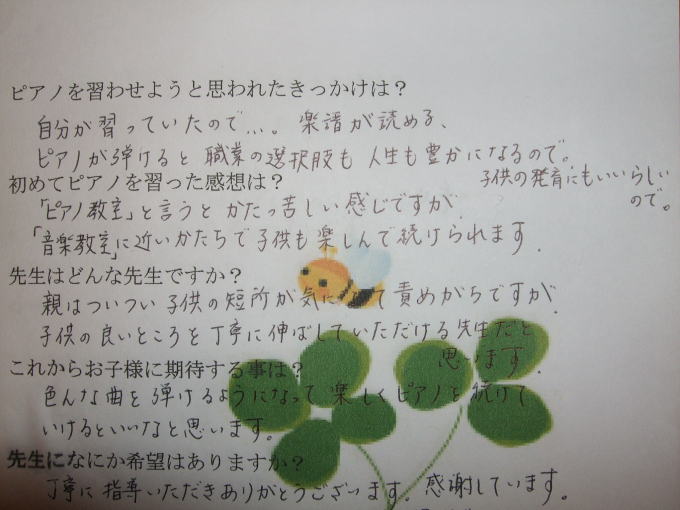 ピアノを習わせようと思われたきっかけは？
自分が習っていたので…。楽譜が読める、
ピアノが弾けると職業の選択肢も人生も豊かになるので。
子供の発育にもいいらしい
ので。
初めてピアノを習った感想は？
「ピアノ教室」と言うとかたっ苦しい感じですが、
「音楽教室」に近いかたちで子供も楽しんで続けられます.
先生はどんな先生ですか？
親はついつい子供の短所が気になって責めがちですが、
子供の良いところを丁寧に伸ばしていただける先生だと
思います.
これからお子様に期待する事は？
色んな曲を弾けるようになって楽しくピアノを続けて
いけるといいなと思います。
先生になにか希望はありますか？
丁寧に指導いただきありがとうございます。感謝しています。